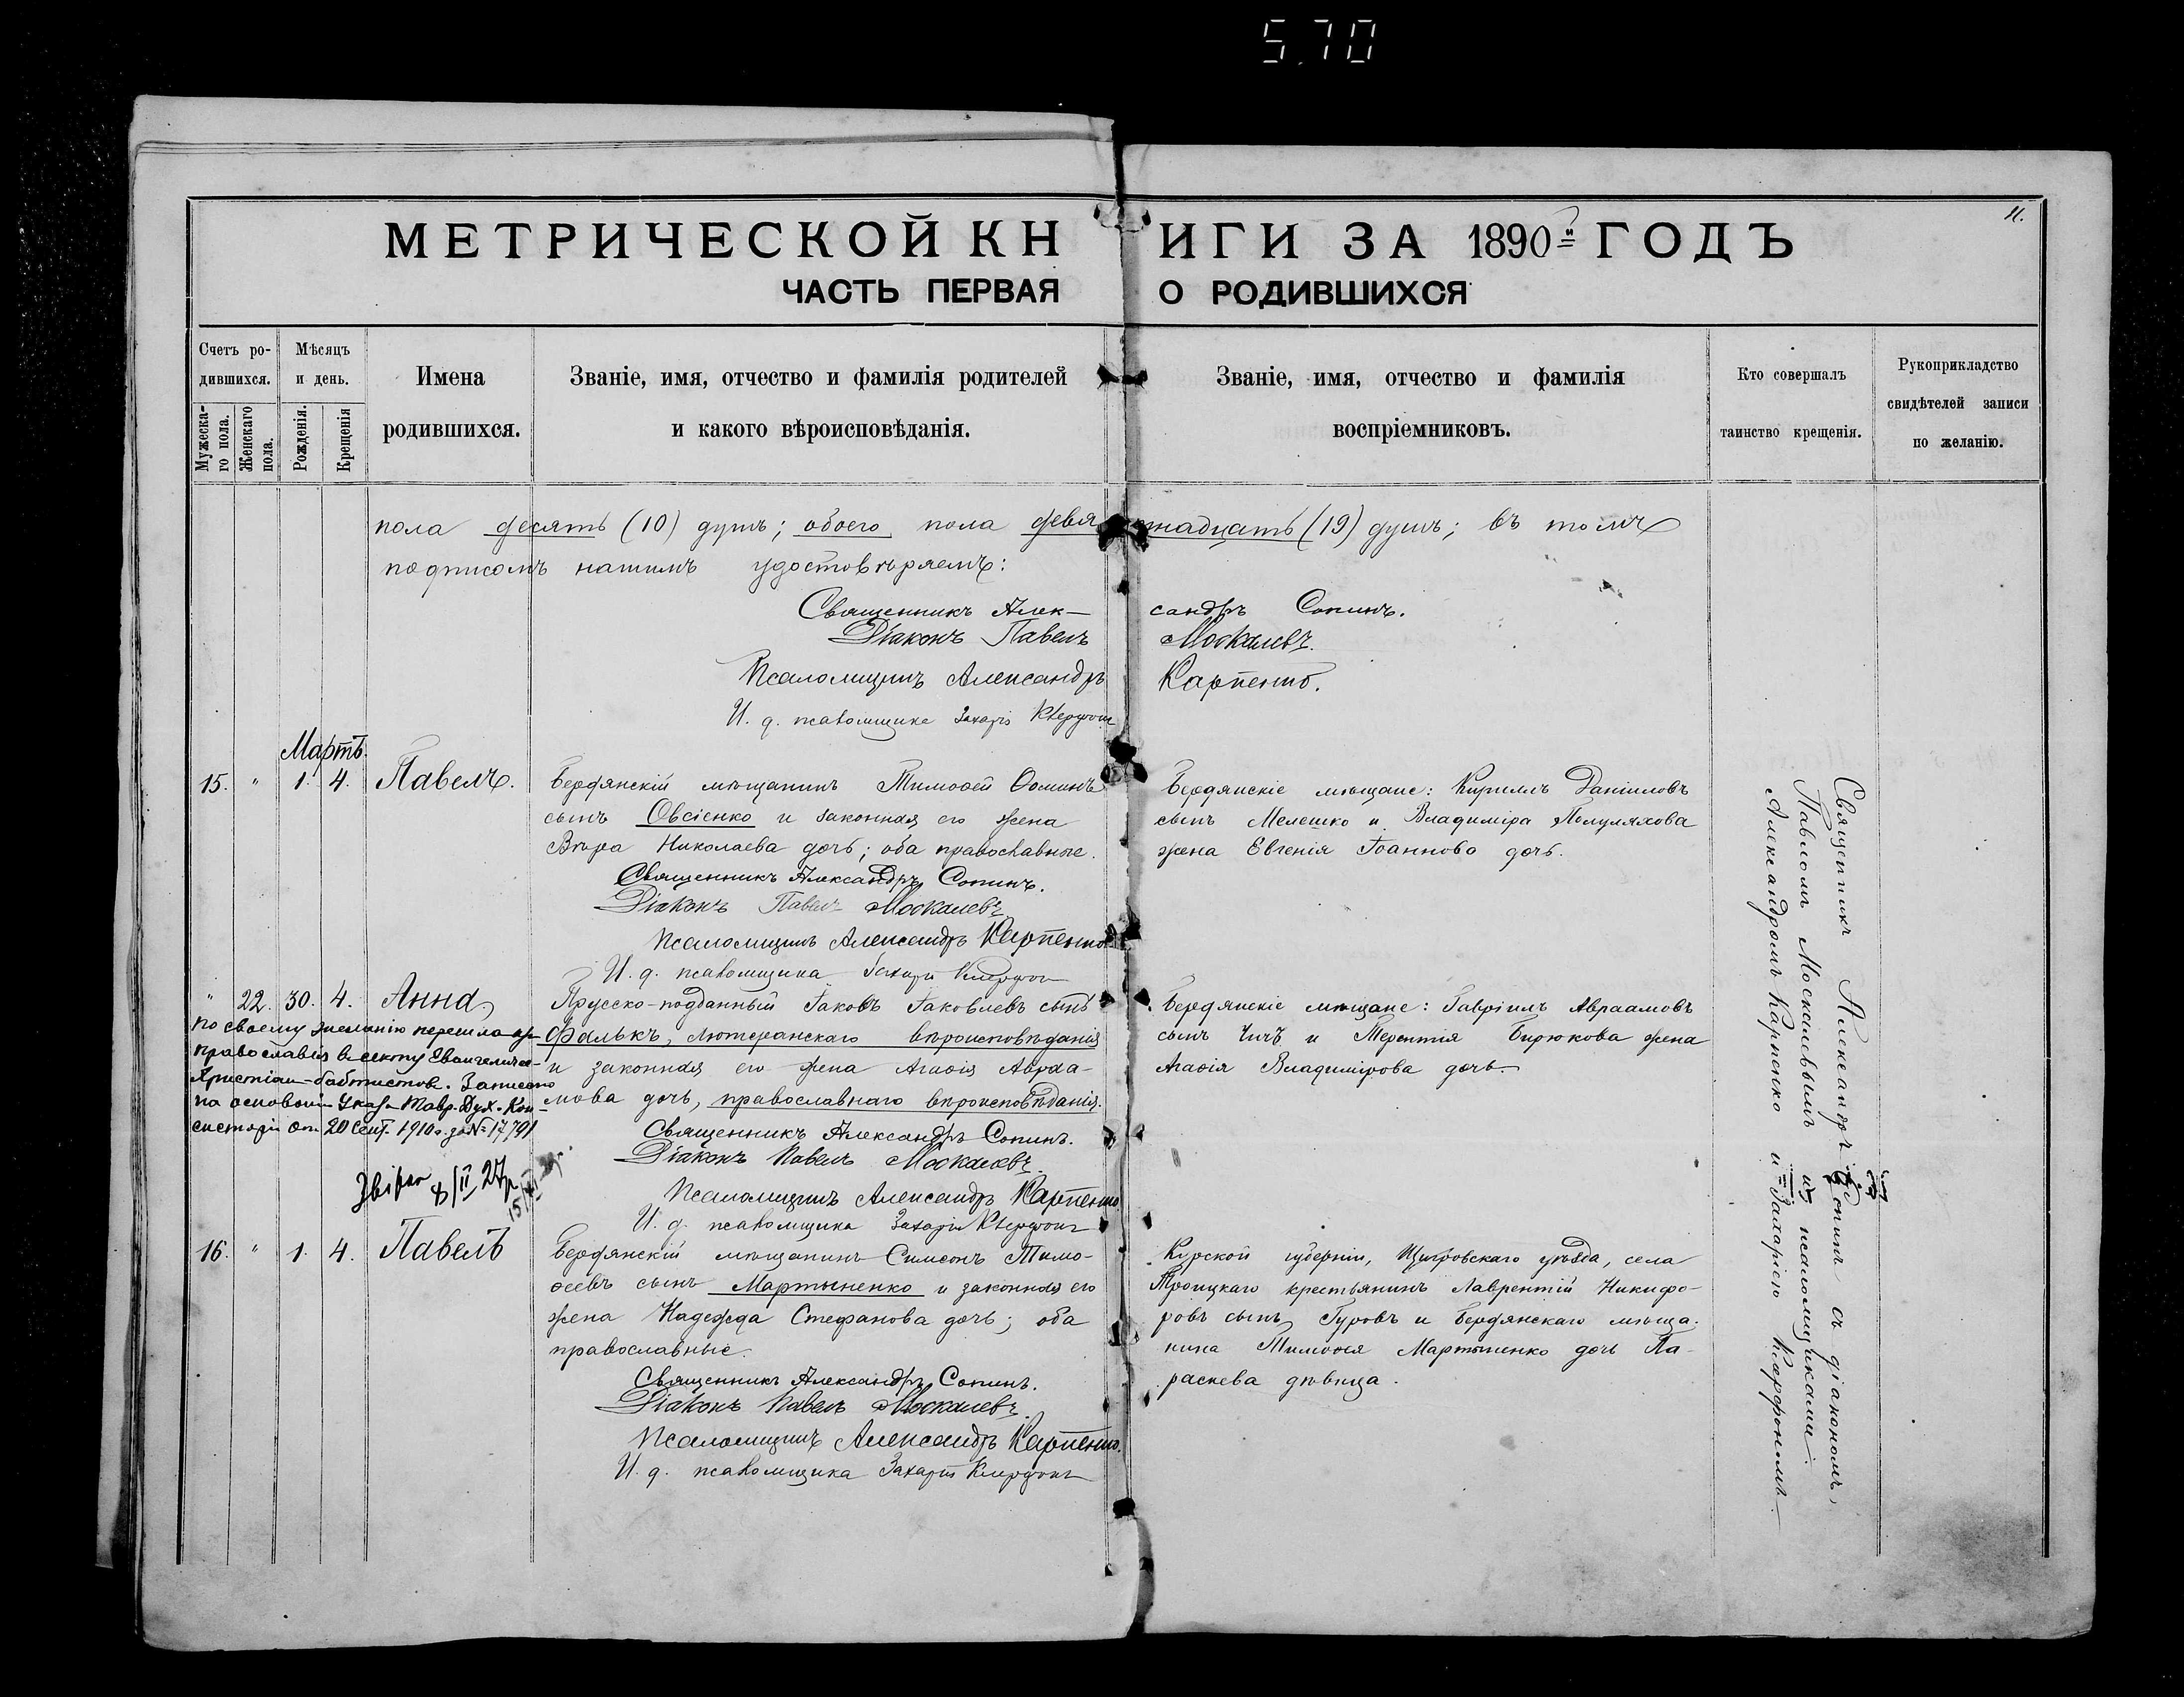 5.70
11.
МЕТРИЧЕСКОЙ КНИГИ ЗА 1890-й ГОДЪ
ЧАСТЬ ПЕРВАЯ О РОДИВШИХСЯ
Счетъ ро-
дившихся.
Мужеска-
го пола.
Женскаго
пола.
Мѣсяцъ
и день.
Рожденія.
Крещенія
Имена
родившихся.
Званіе, имя, отчество и фамилія родителей
и какого вѣроисповѣданія.
Званіе, имя, отчество и фамилія
воспріемниковъ.
Кто совершалъ
таинство крещенія.
Рукоприкладство
свидѣтелей записи
по желанію.
пола десять (10) душъ; обоего пола девятнадцать (19) душъ; въ томъ
подписомъ нашимъ удостовѣряемъ:
Священникъ Александръ Сопинъ.
Діаконъ Павелъ Москалевъ.
Псаломщикъ Александръ Карпенко.
И. д. псаломщика Захарій
Мартъ.
15. " 1. 4. Павелъ.
Бердянскій мѣщанинъ Тимоѳей Ѳоминъ
сынъ Овсіенко и законная его жена
Вѣра Николаева дочь; оба православные.
Священникъ Александръ Сопинъ.
Діаконъ Павелъ Москалевъ
Псаломщикъ Александръ Карпенко
И. д. псаломщика Захарій
Бердянскіе мѣщане: Кириллъ Даніиловъ
сынъ Мелешко и Владиміра Полуляхова
жена Евгенія Іоаннова дочь.
" 22. 30. 4. Анна
Прусско-подданный Іаковъ Іаковлевъ сынъ
Фалькъ, лютеранскаго вѣроисповѣданія
и законная его жена Агаѳія Авраа-
мова дочь, православнаго вѣроисповѣданія.
Священникъ Александръ Сопинъ.
Діаконъ Павелъ Москалевъ.
Псаломщикъ Александръ Карпенко
И. д. псаломщика Захарій
Бердянскіе мѣщане: Гавріилъ Авраамовъ
сынъ Чичъ и Терентія Бирюкова жена
Агаѳія Владимірова дочь.
По своему желанію перешла изъ
православія въ секту Евангельск-
Христіан-баптистов. Записано
на основаніи Указа Тавр. Дух. Кон-
систоріи от 20 Сент. 1910 г. за № 17791
8/II 27р
16. " 1. 4. Павелъ
Бердянскій мѣщанинъ Симеонъ Тимо-
ѳеевъ сынъ Мартыненко и законная его
жена Надежда Стефанова дочь; оба
православные.
Священникъ Александръ Сопинъ.
Діаконъ Павелъ Москалевъ.
Псаломщикъ Александръ Карпенко.
И. д. псаломщика Захарій
Курской губерніи, Щигровскаго уѣзда, села
Троицкаго крестьянинъ Лаврентій Никифо-
ровъ сынъ Гуровъ и Бердянскаго мѣща-
нина Тимоѳея Мартыненко дочь Па-
раскева дѣвица.
Священникъ Александръ Сопинъ съ діакономъ,
Павломъ Москалевымъ и псаломщиками:
Александромъ Карпенко и Захаріею